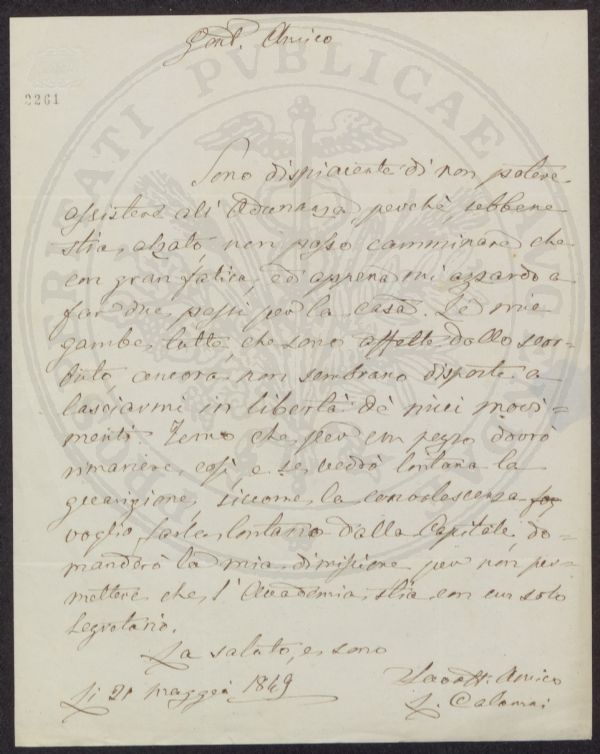 Gent. Amico
2261
Sono dispiacente di non potere
assistere all' Adunanza, perchè, sebbene
stia alzato, non posso camminare che
con gran fatica, ed appena mi azzardo a
far due passi per la casa. Le mie
gambe tutte, che sono affette dallo scor-
buto, ancora non sembrano disposte a
lasciarmi in libertà de' miei movi-
menti. Temo che per un pezzo dovrò
rimanere così e se vedrò lontana la
guarigione, siccome la convalescenza
voglio farla lontano dalla Capitale, do-
manderò la mia dimissione per non per-
mettere che l' Accademia stia con un solo
Segretario.
La saluto, e sono
Li 21 Maggio 1849
Amico
L. Calamai